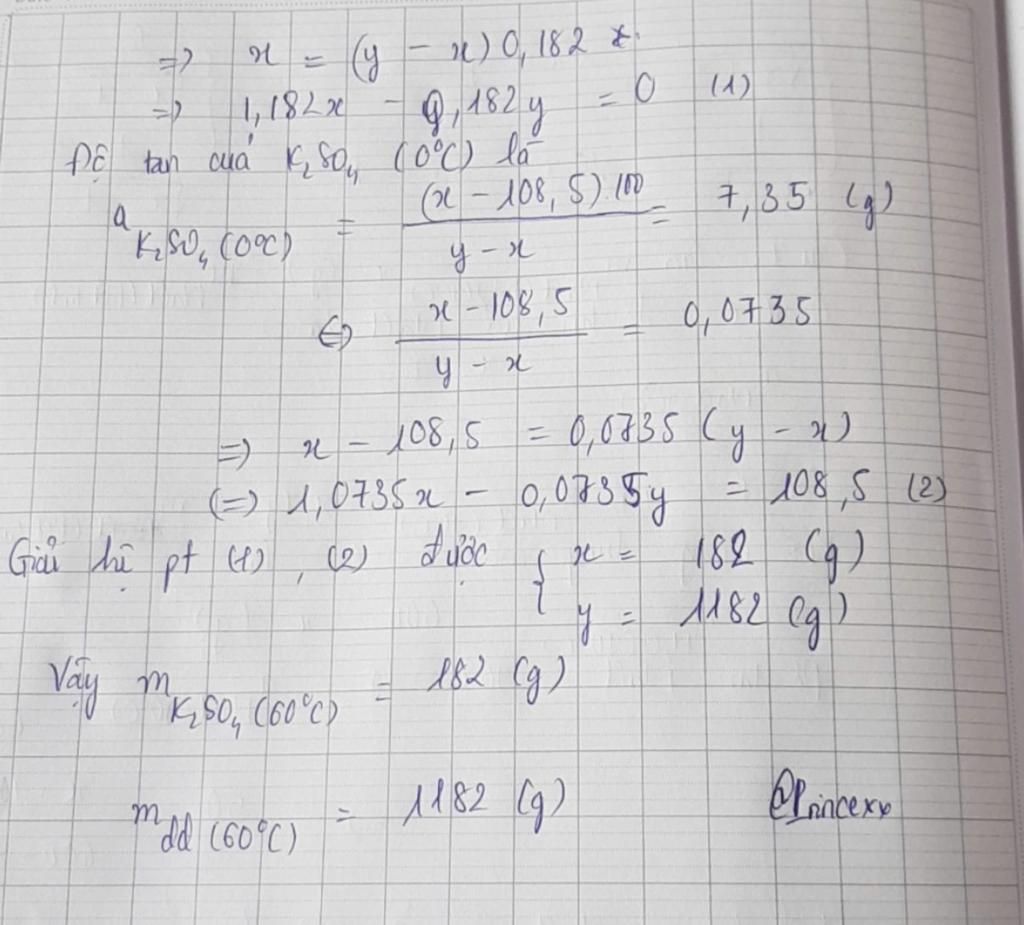 => x = (y - x) 0,182
=> 1,182x - 0,182y = 0 (1)
Độ tan của K₂SO₄ (0°C) là
a K₂SO₄ (0°C) = (x - 108,5).100 / y - x = 7,35 (g)
<=> x - 108,5 / y - x = 0,0735
=> x - 108,5 = 0,0735 (y - x)
(=) 1,0735x - 0,0735y = 108,5 (2)
Giải hệ pt (1), (2) được { x = 182 (g)
y = 1182 (g)
Vậy m K₂SO₄ (60°C) = 182 (g)
m dd (60°C) = 1182 (g)
@Princexx